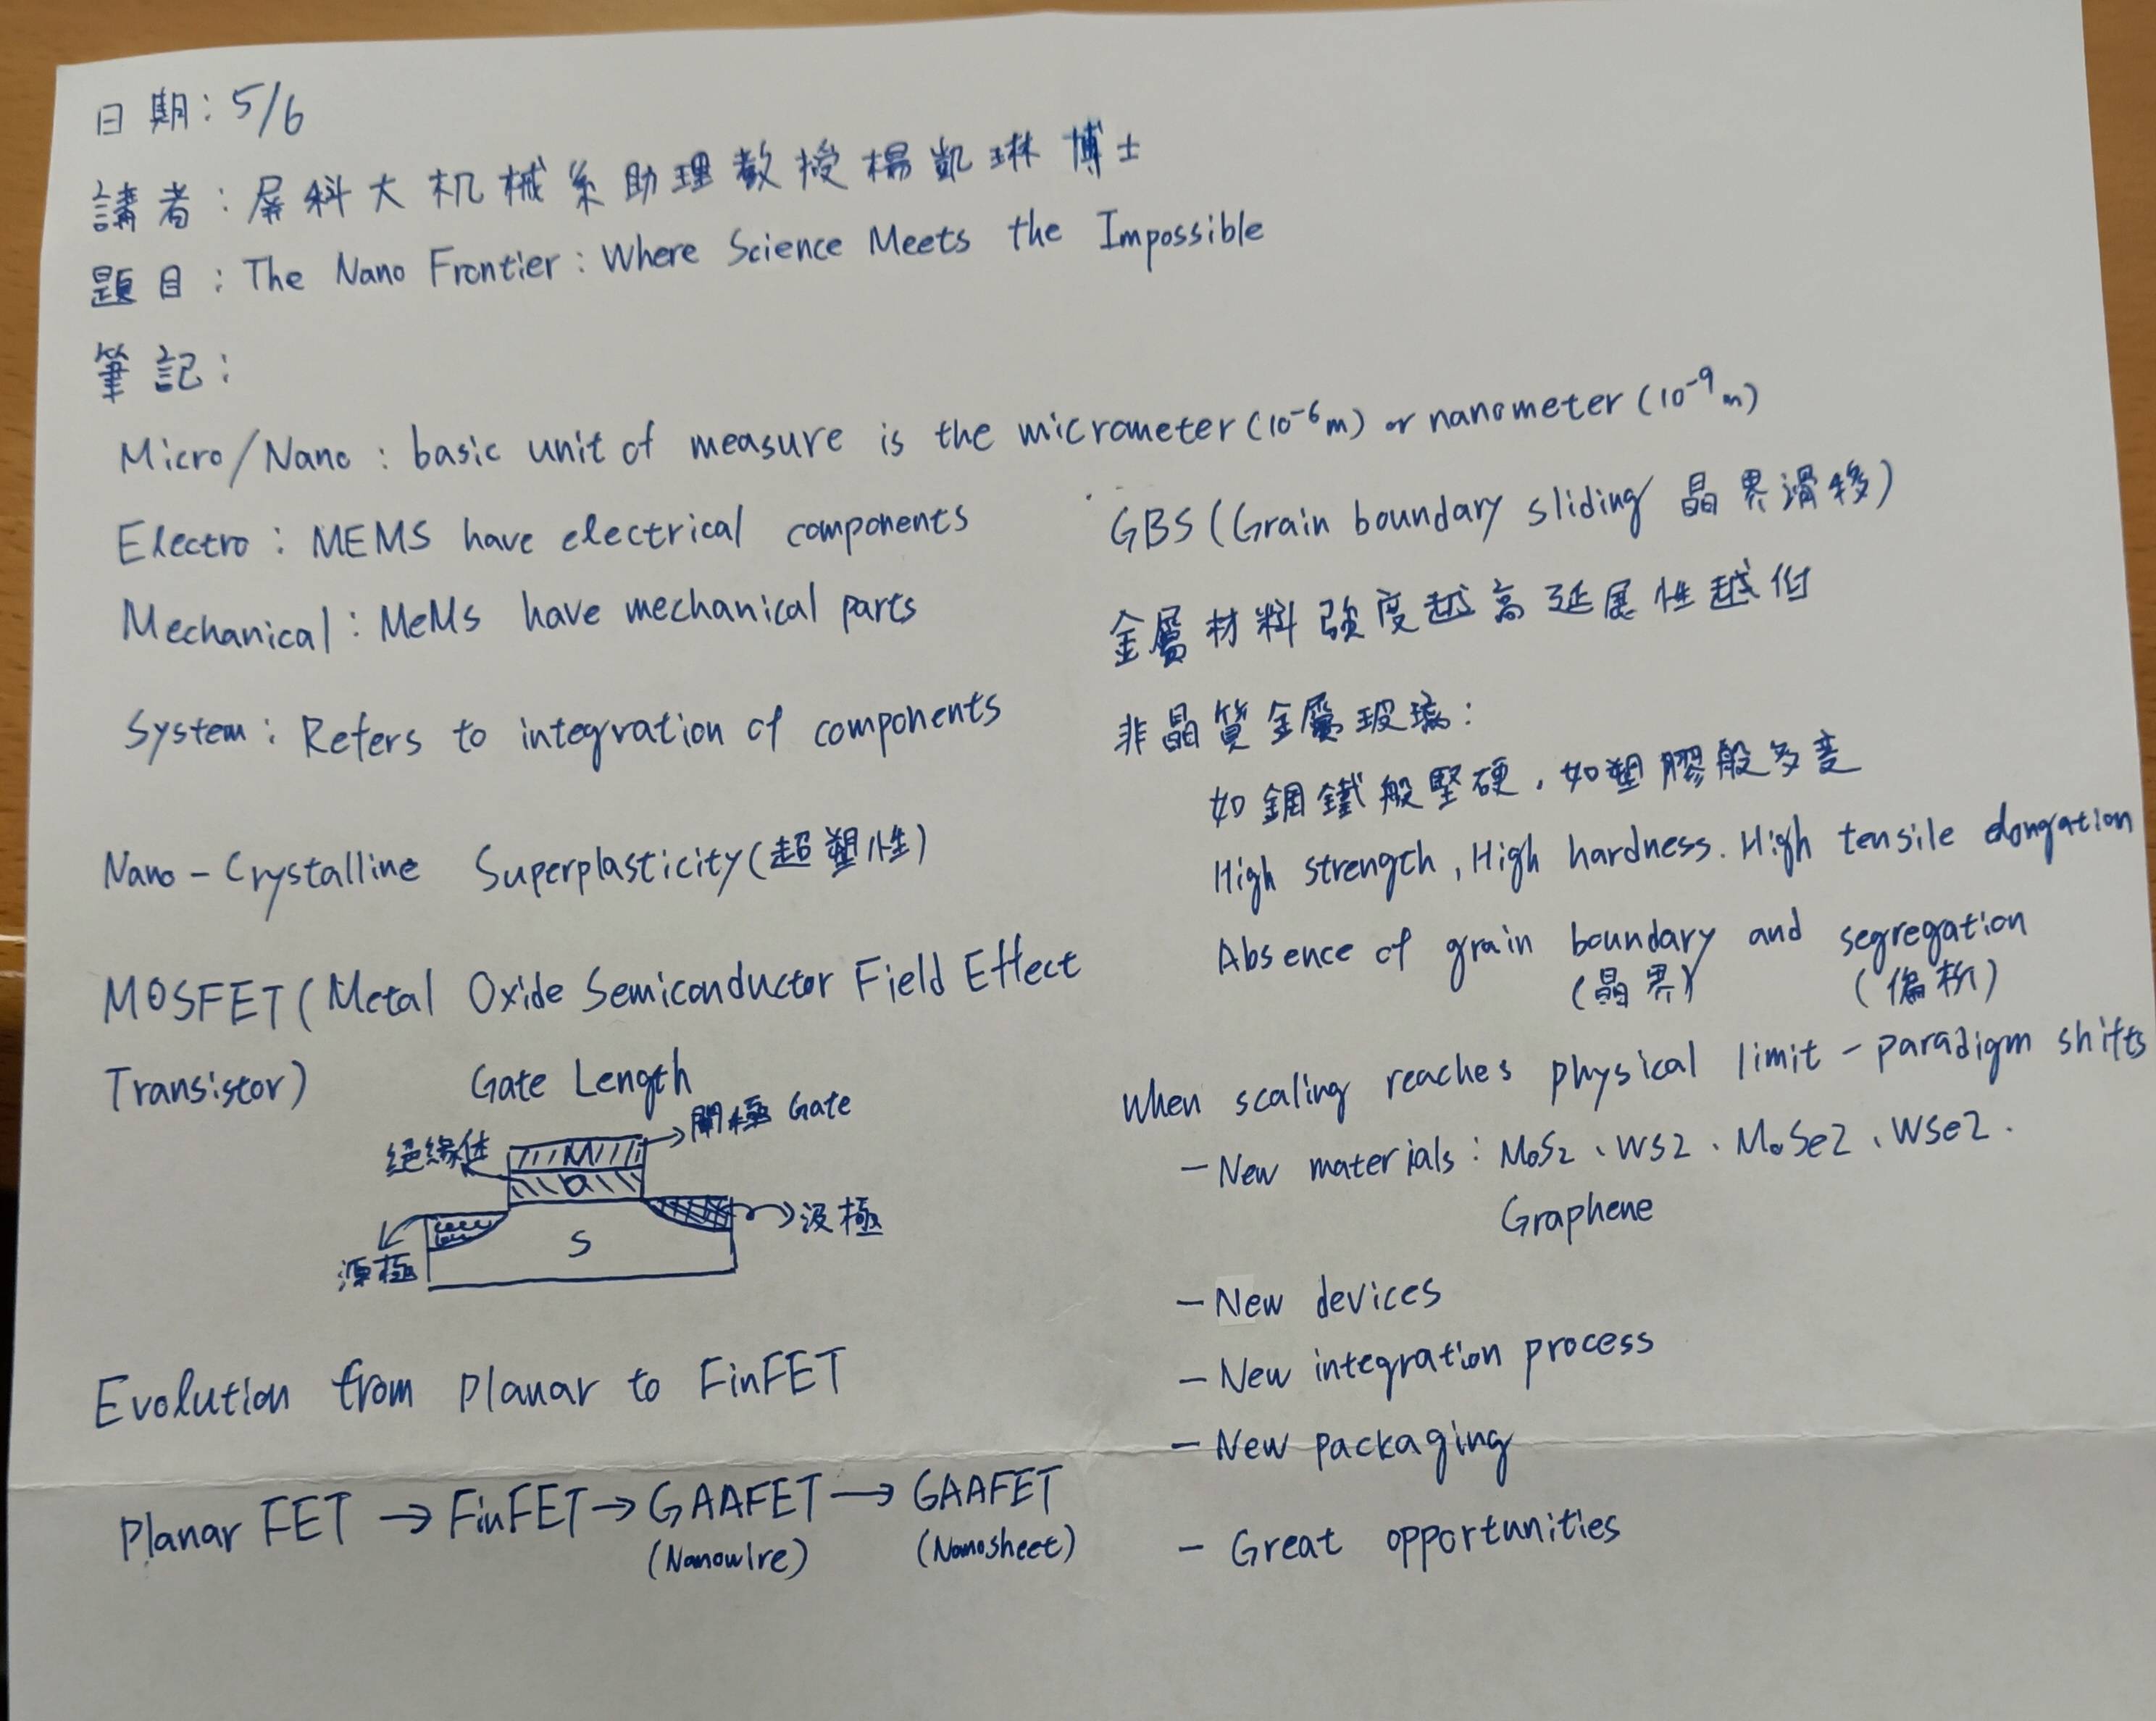 日期：5/6
講者：屏科大机械系助理教授楊凱琳博士
題目：The Nano Frontier : Where Science Meets the Impossible
筆記：
Micro/Nano : basic unit of measure is the micrometer (10⁻⁶m) or nanometer (10⁻⁹m)
Electro : MEMS have electrical components
Mechanical : MeMs have mechanical parts
System : Refers to integration of components
Nano-Crystalline Superplasticity (超塑性)
MOSFET (Metal Oxide Semiconductor Field Effect
Transistor)
Gate Length
閘極 Gate
絕緣体
M
O
S
源極
汲極
Evolution from planar to FinFET
Planar FET → FinFET → GAAFET → GAAFET
(Nanowire) (Nanosheet)
GBS (Grain boundary sliding 晶界滑移)
金屬材料強度越高延展性越低
非晶質金屬玻璃：
如鋼鐵般堅硬，如塑膠般多變
High strength, High hardness. High tensile elongation
Absence of grain boundary and segregation
(晶界) (偏析)
When scaling reaches physical limit - paradigm shifts
- New materials : MoS2、WS2、MoSe2、WSe2.
Graphene
- New devices
- New integration process
- New packaging
- Great opportunities